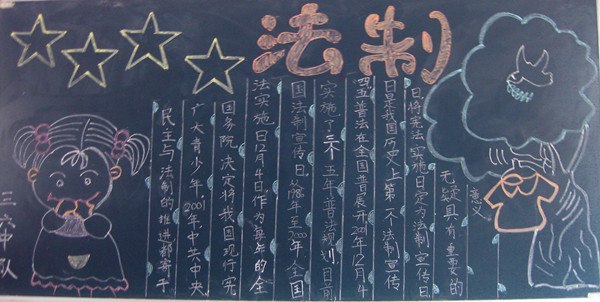 法制
民主与法制的推进都
广大青少年。2001年,中共中央、
国务院决定将我国现行宪
法实施日12月4日作为每年的全
国法制宣传日。至2000年全国
实施了三个五年普法规划。目前
四五普法在全国展开2001年12月4
日是我国历史上第一个法制宣传
日,将宪法实施日定为法制宣传日
无疑具有重要的
意义
三六中队